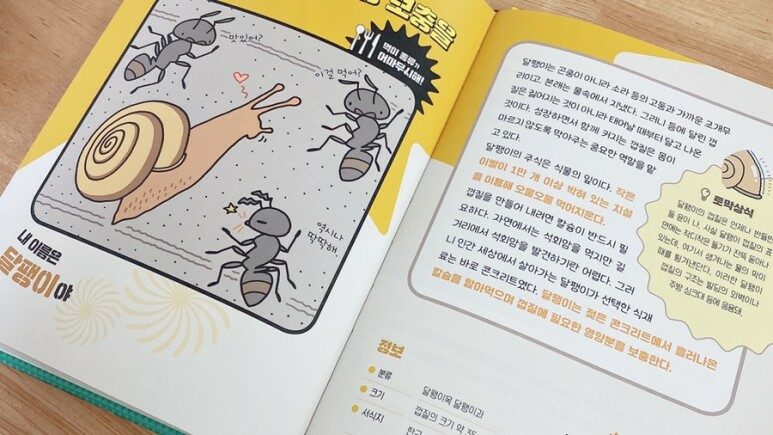 보충을
먹이 종류가
어마무시해!
맛있어?
이걸 먹어?
역시나
딱딱해.
내 이름은
달팽이야
달팽이는 곤충이 아니라 소라 등의 고둥과 가까운 조개무
리이고, 본래는 물속에서 지냈다. 그러니 등에 달린 껍
질은 짊어지는 것이 아니라 태어날 때부터 달고 나온
것이다. 성장하면서 함께 커지는 껍질은 몸이
마르지 않도록 막아주는 중요한 역할을 맡
고 있다.
달팽이의 주식은 식물의 잎이다. 작은
이빨이 1만 개 이상 박혀 있는 치설
을 이용해 오물오물 먹어치운다.
껍질을 만들어 내려면 칼슘이 반드시 필
요하다. 자연에서는 석회암을 먹지만 길
거리에서 석회암을 발견하기란 어렵다. 그러
니 인간 세상에서 살아가는 달팽이가 선택한 식재
료는 바로 콘크리트였다. 달팽이는 젖은 콘크리트에서 흘러나온
칼슘을 핥아먹으며 껍질에 필요한 영양분을 보충한다.
토막상식
달팽이의 껍질은 언제나 반들반
을 띤다
면에는 자디잔 돌기가 잔뜩 돋아
있는데, 여기서 생겨나는 물의 막이
때를 튕겨낸다. 이러한 달팽이
껍질의 구조는 빌딩의 외벽이나
주방 싱크대 등에 응용돼.
정보
분류
달팽이목 달팽이과
크기
껍질의 크기 약
서식지
한국